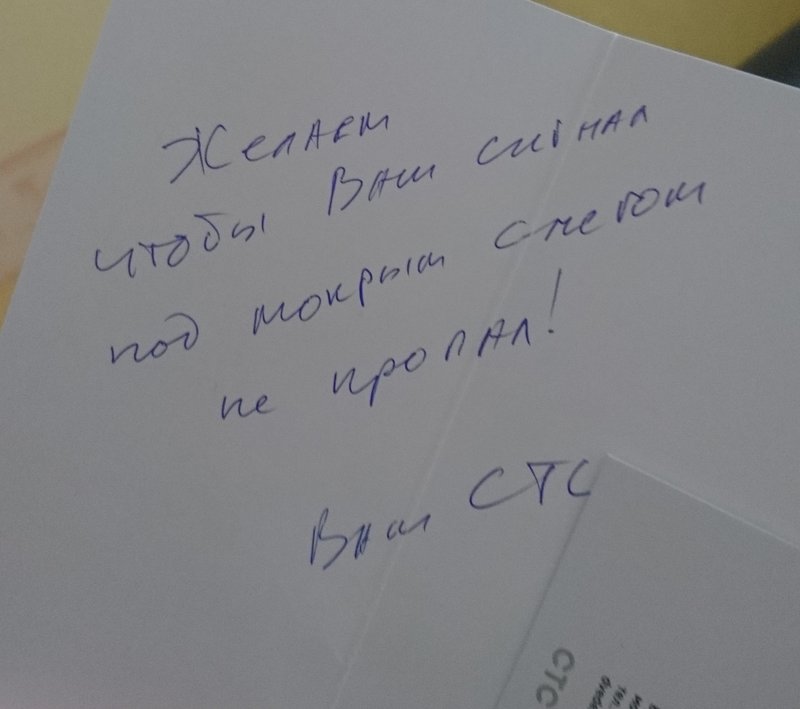 Желаем
чтобы Ваш сигнал
под мокрым снегом
не пропал!
Ваш СТС
СТС